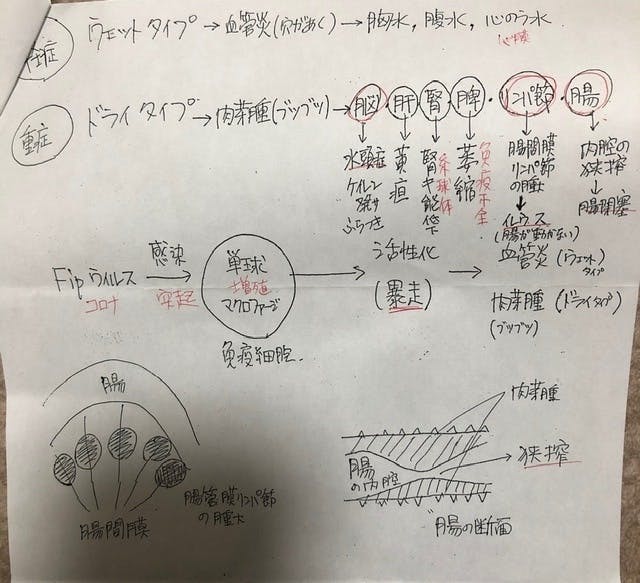 症
ウェットタイプ→血管炎(穴があく)→胸水,腹水,心のう水
心膜
重症
ドライタイプ→肉芽腫(ブツブツ)→脳.肝.腎.脾.リンパ節.腸
水頭症
ケイレン
ふらつき
黄疸
腎キ能低下
糸球体
萎縮
免疫不全
腸間膜
リンパ節
の腫大
イレウス
(腸が動かない)
内腔の
狭搾
腸閉塞
Fipウイルス
コロナ
感染
突起
単球
増殖
マクロファージ
免疫細胞.
活性化
(暴走)
血管炎(ウェットタイプ)
肉芽腫(ドライタイプ)
(ブツブツ)
腸
腸管膜リンパ節
の腫大
腸間膜
肉芽腫
狭搾
腸
の内腔
腸の断面